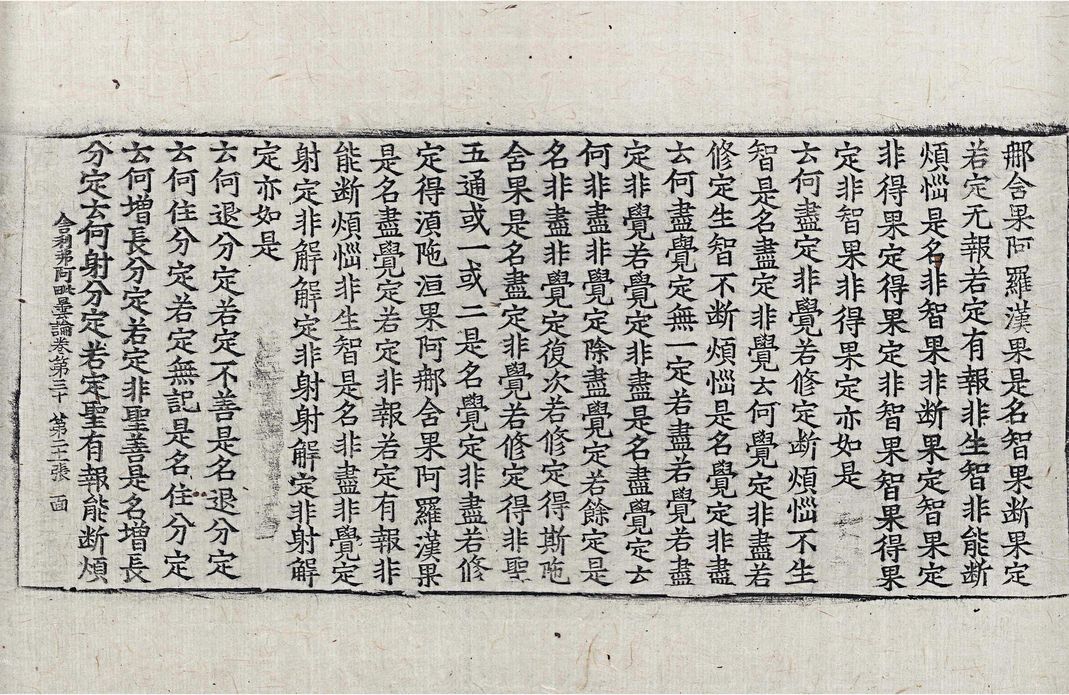 郍舍果阿羅漢果是名智果断果定
若定无報若定有報非生智非能断
煩惱是名非智果非断果定智果定
非得果定得果定非智果智果得果
定非智果非得果定亦如是
云何盡定非覺若修定断煩惱不生
智是名盡定非覺云何覺定非盡若
修定生智不断煩惱是名覺定非盡
云何盡覺定無一定若盡若覺若盡
定非覺若覺定非盡是名盡覺定云
何非盡非覺定除盡覺定若餘定是
名非盡非覺定復次若修定得斯陁
舍果是名盡定非覺若修定得非聖
五通或一或二是名覺定非盡若修
定得湏陁洹果阿郍舍果阿羅漢果
是名盡覺定若定非報若定有報非
能断煩惱非生智是名非盡非覺定
射定非解解定非射射解定非射解
定亦如是
云何退分定若定不善是名退分定
云何住分定若定無記是名住分定
云何增長分定若定非聖善是名增長
分定云何射分定若定聖有報能断煩
舎利弗阿毗曇論卷第三十 第二十張 面